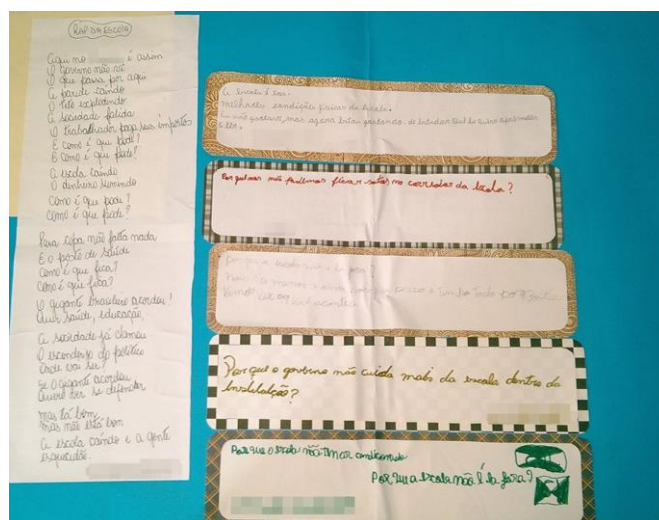 RAP DA ESCOLA
Aqui no é assim
O governo não vê
O que passa por aqui
A parede caindo
O teto explodindo
A sociedade falida
O trabalhador paga seus impostos
E como é que pode?
E como é que pode?
A escola caindo
O dinheiro sumindo
Como é que pode?
Como é que pode?
Para copa não falta nada
E o posto de saúde
Como é que fica?
Como é que fica?
O gigante brasileiro acordou!
Quer saúde, educação,
A sociedade já clamou
O esconderijo do político
Onde vai ser?
Se o gigante acordou
Quero ver se defender
mas tá bom
mas não está bom
A escola caindo e a gente
esquecidos.
A Escola é boa.
melhores condições físicas da Escola.
Eu não gostava, mas agora estou gostando de Estudar
Por que nós não podemos ficar soltos no corredor da Escola?
Por que a escola não é la fora?
Por que o governo não cuida mais da escola dentro da
Instituição?
Por que a Escola não Tem ar condicionado
Por que a Escola não é la fora?